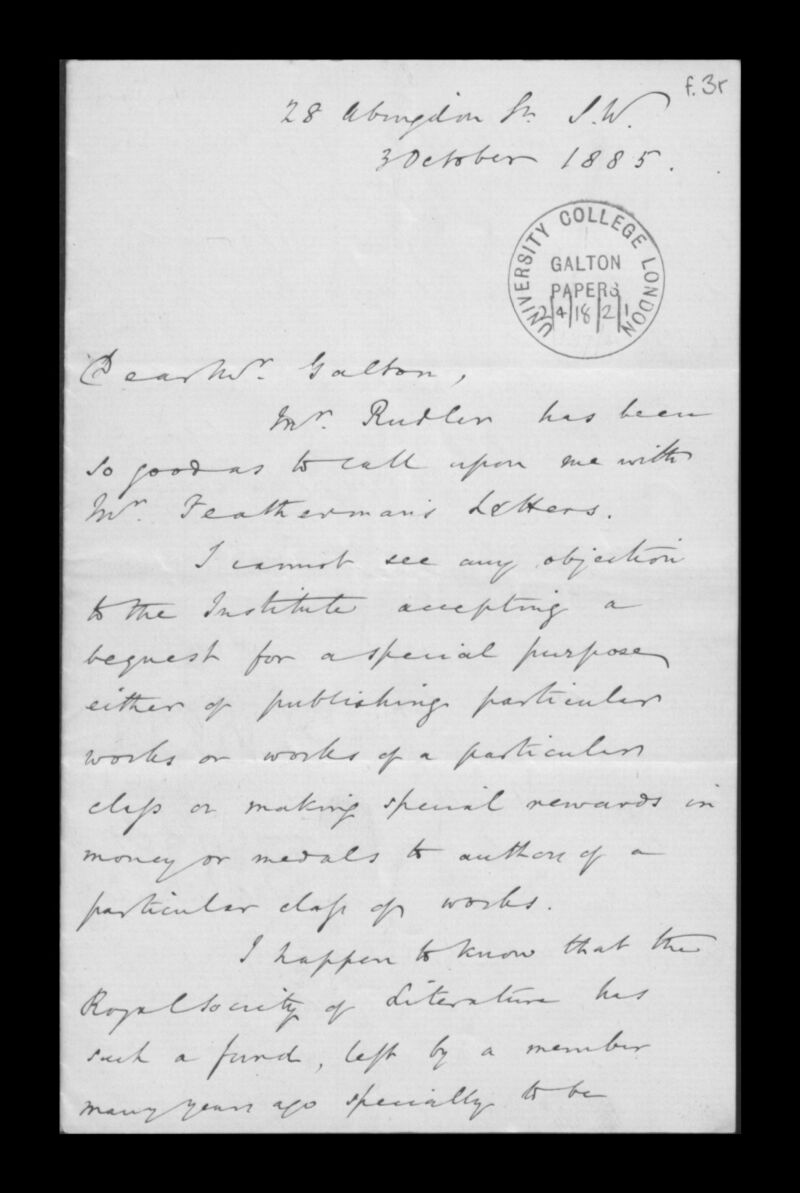 f.3r
28 Abingdon St. S.W.
3 October 1885.
UNIVERSITY COLLEGE LONDON
GALTON
PAPERS
2/4/18/2/1
Dear Mr. Galton,
Mr. Rudler has been
so good as to call upon me with
Mr. Featherman's letters.
I cannot see any objection
to the Institute accepting a
bequest for a special purpose
either of publishing particular
works or works of a particular
class or making special rewards in
money or medals to authors of a
particular class of works.
I happen to know that the
Royal Society of Literature has
such a fund, left by a member
many years ago specially to be